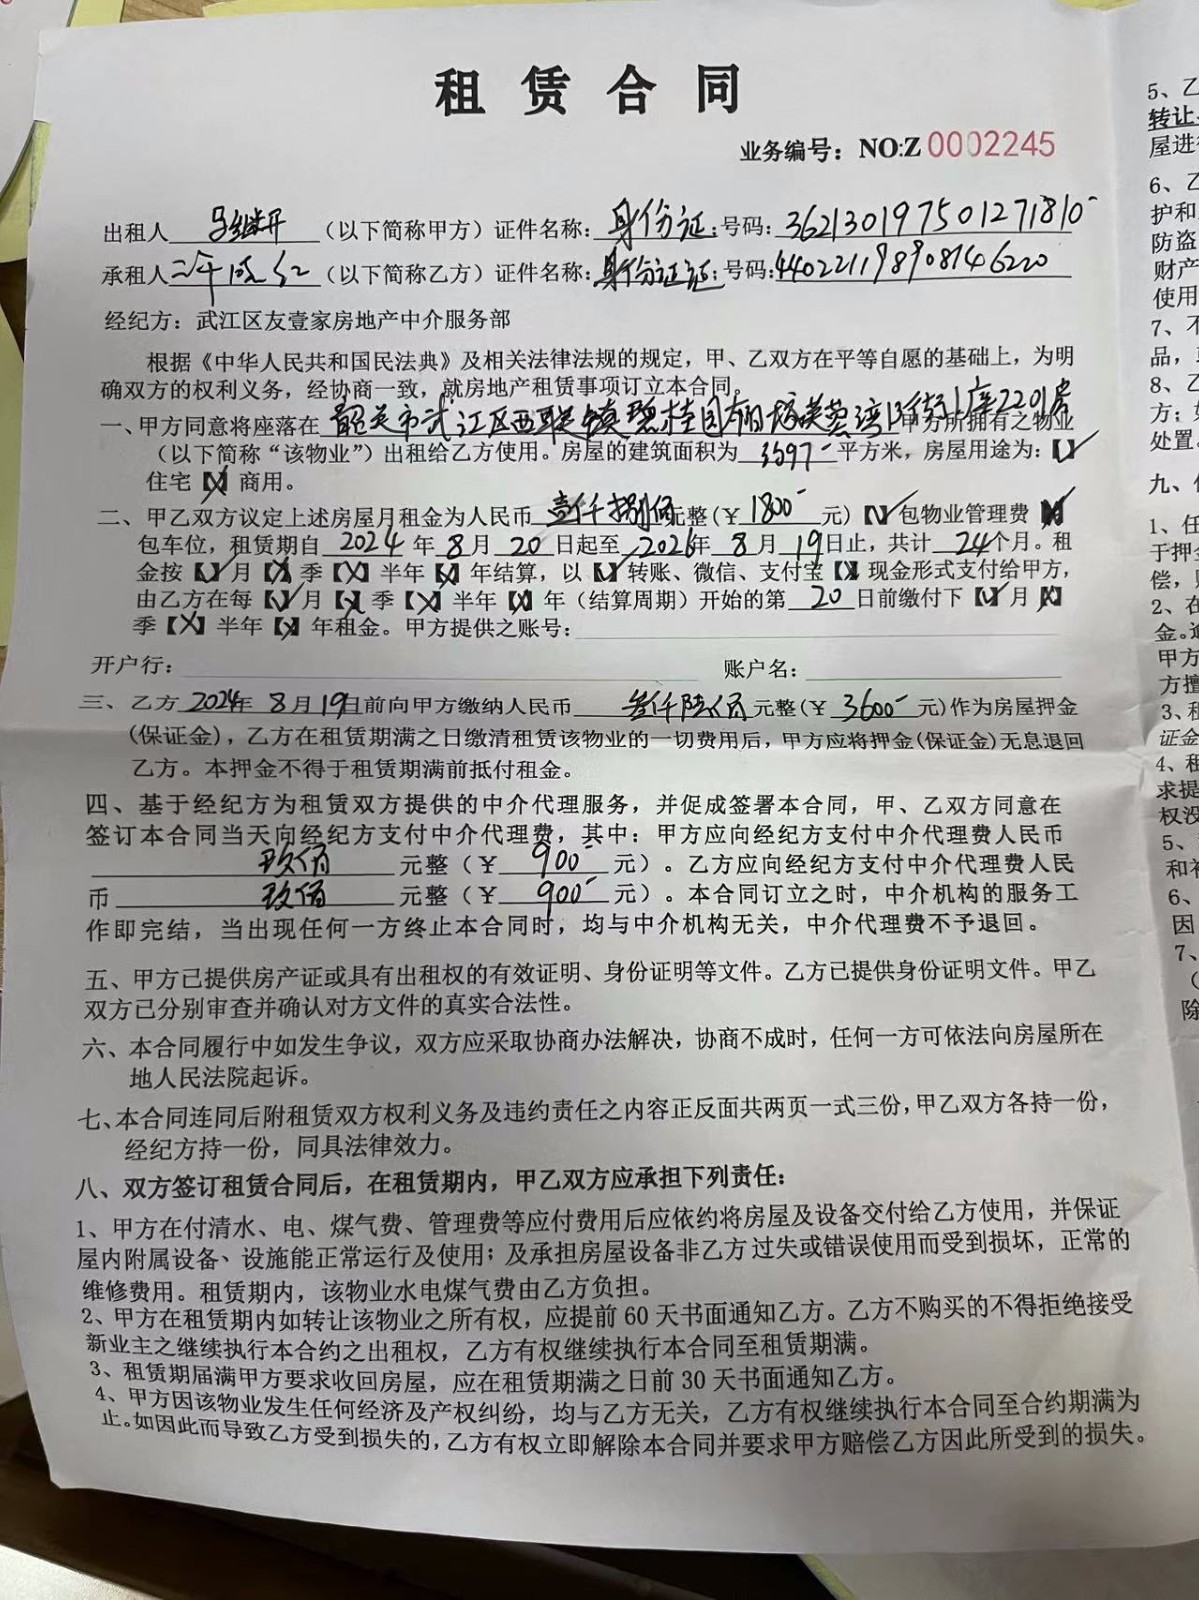 租赁合同
业务编号：NO:Z 0002245
出租人 （以下简称甲方）证件名称：身份证；号码：362130197501271810
承租人 （以下简称乙方）证件名称：身份证；号码：440221198908146220
经纪方：武江区友壹家房地产中介服务部
根据《中华人民共和国民法典》及相关法律法规的规定，甲、乙双方在平等自愿的基础上，为明
确双方的权利义务，经协商一致，就房地产租赁事项订立本合同。
一、甲方同意将座落在 韶关市武江区西联镇碧桂园 芙蓉湾13街1座2201房 甲方所拥有之物业
（以下简称“该物业”）出租给乙方使用。房屋的建筑面积为 平方米，房屋用途为：【✓】
住宅【✗】商用。
二、甲乙双方议定上述房屋月租金为人民币 壹仟捌佰 元整(￥ 1800 元)【✓】包物业管理费【】
包车位，租赁期自 2024 年 8 月 20 日起至 2026 年 8 月 19 日止，共计 24 个月。租
金按【✓】月【✗】季【✗】半年【✗】年结算，以【✓】转账、微信、支付宝【】现金形式支付给甲方，
由乙方在每【✓】月【✗】季【✗】半年【✗】年（结算周期）开始的第 20 日前缴付下【✓】月【✗】
季【✗】半年【✗】年租金。甲方提供之账号：
开户行： 账户名：
三、乙方 2024年 8月19日前向甲方缴纳人民币 叁仟陆佰 元整(￥ 3600 元)作为房屋押金
(保证金)，乙方在租赁期满之日缴清租赁该物业的一切费用后，甲方应将押金(保证金)无息退回
乙方。本押金不得于租赁期满前抵付租金。
四、基于经纪方为租赁双方提供的中介代理服务，并促成签署本合同，甲、乙双方同意在
签订本合同当天向经纪方支付中介代理费，其中：甲方应向经纪方支付中介代理费人民币
玖佰 元整（￥ 900 元）。乙方应向经纪方支付中介代理费人民
币 玖佰 元整（￥ 900 元）。本合同订立之时，中介机构的服务工
作即完结，当出现任何一方终止本合同时，均与中介机构无关，中介代理费不予退回。
五、甲方已提供房产证或具有出租权的有效证明、身份证明等文件。乙方已提供身份证明文件。甲乙
双方已分别审查并确认对方文件的真实合法性。
六、本合同履行中如发生争议，双方应采取协商办法解决，协商不成时，任何一方可依法向房屋所在
地人民法院起诉。
七、本合同连同后附租赁双方权利义务及违约责任之内容正反面共两页一式三份，甲乙双方各持一份，
经纪方持一份，同具法律效力。
八、双方签订租赁合同后，在租赁期内，甲乙双方应承担下列责任：
1、甲方在付清水、电、煤气费、管理费等应付费用后应依约将房屋及设备交付给乙方使用，并保证
屋内附属设备、设施能正常运行及使用；及承担房屋设备非乙方过失或错误使用而受到损坏，正常的
维修费用。租赁期内，该物业水电煤气费由乙方负担。
2、甲方在租赁期内如转让该物业之所有权，应提前 60 天书面通知乙方。乙方不购买的不得拒绝接受
新业主之继续执行本合约之出租权，乙方有权继续执行本合同至租赁期满。
3、租赁期届满甲方要求收回房屋，应在租赁期满之日前 30 天书面通知乙方。
4、甲方因该物业发生任何经济及产权纠纷，均与乙方无关，乙方有权继续执行本合同至合约期满为
止。如因此而导致乙方受到损失的，乙方有权立即解除本合同并要求甲方赔偿乙方因此所受到的损失。
5、乙
转让
屋进
6、乙
护和
防盗
财产
使用
7、不
品，
8、乙
方；
处置。
九、
1、任
于押
偿，
2、在
金。
甲方
方擅
3、租
证金
4、租
求提
权没
5、
和
6、
因
7、
（
除